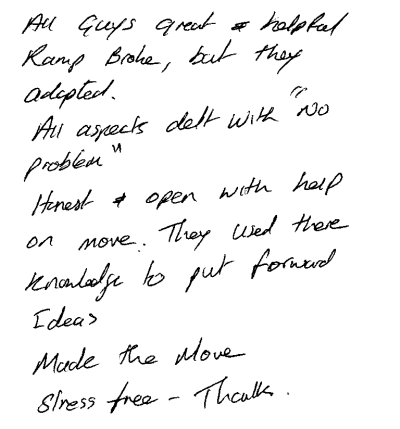 All Guys great & helpful
Ramp Broke, but they
adapted.
All aspects delt with "No
problem"
Honest & open with help
on move. They used there
knowledge to put forward
Ideas
Made the Move
Stress free - Thanks.